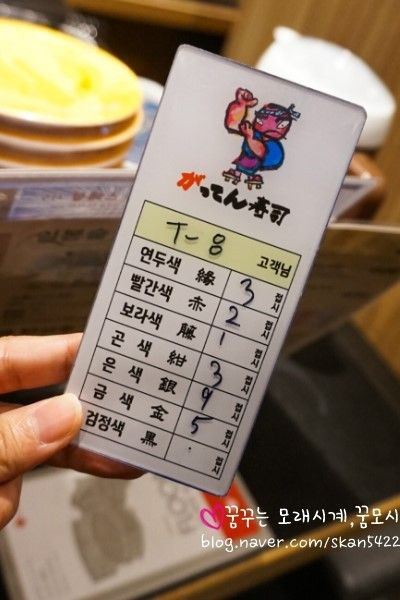 がってん寿司
T-8 고객님
연두색 緣 3 접시
빨간색 赤 2 접시
보라색 藤 1 접시
곤색 紺 3 접시
은색 銀 9 접시
금색 金 5 접시
검정색 黒 접시
꿈꾸는 모래시계,꿈모시
blog.naver.com/skan5422